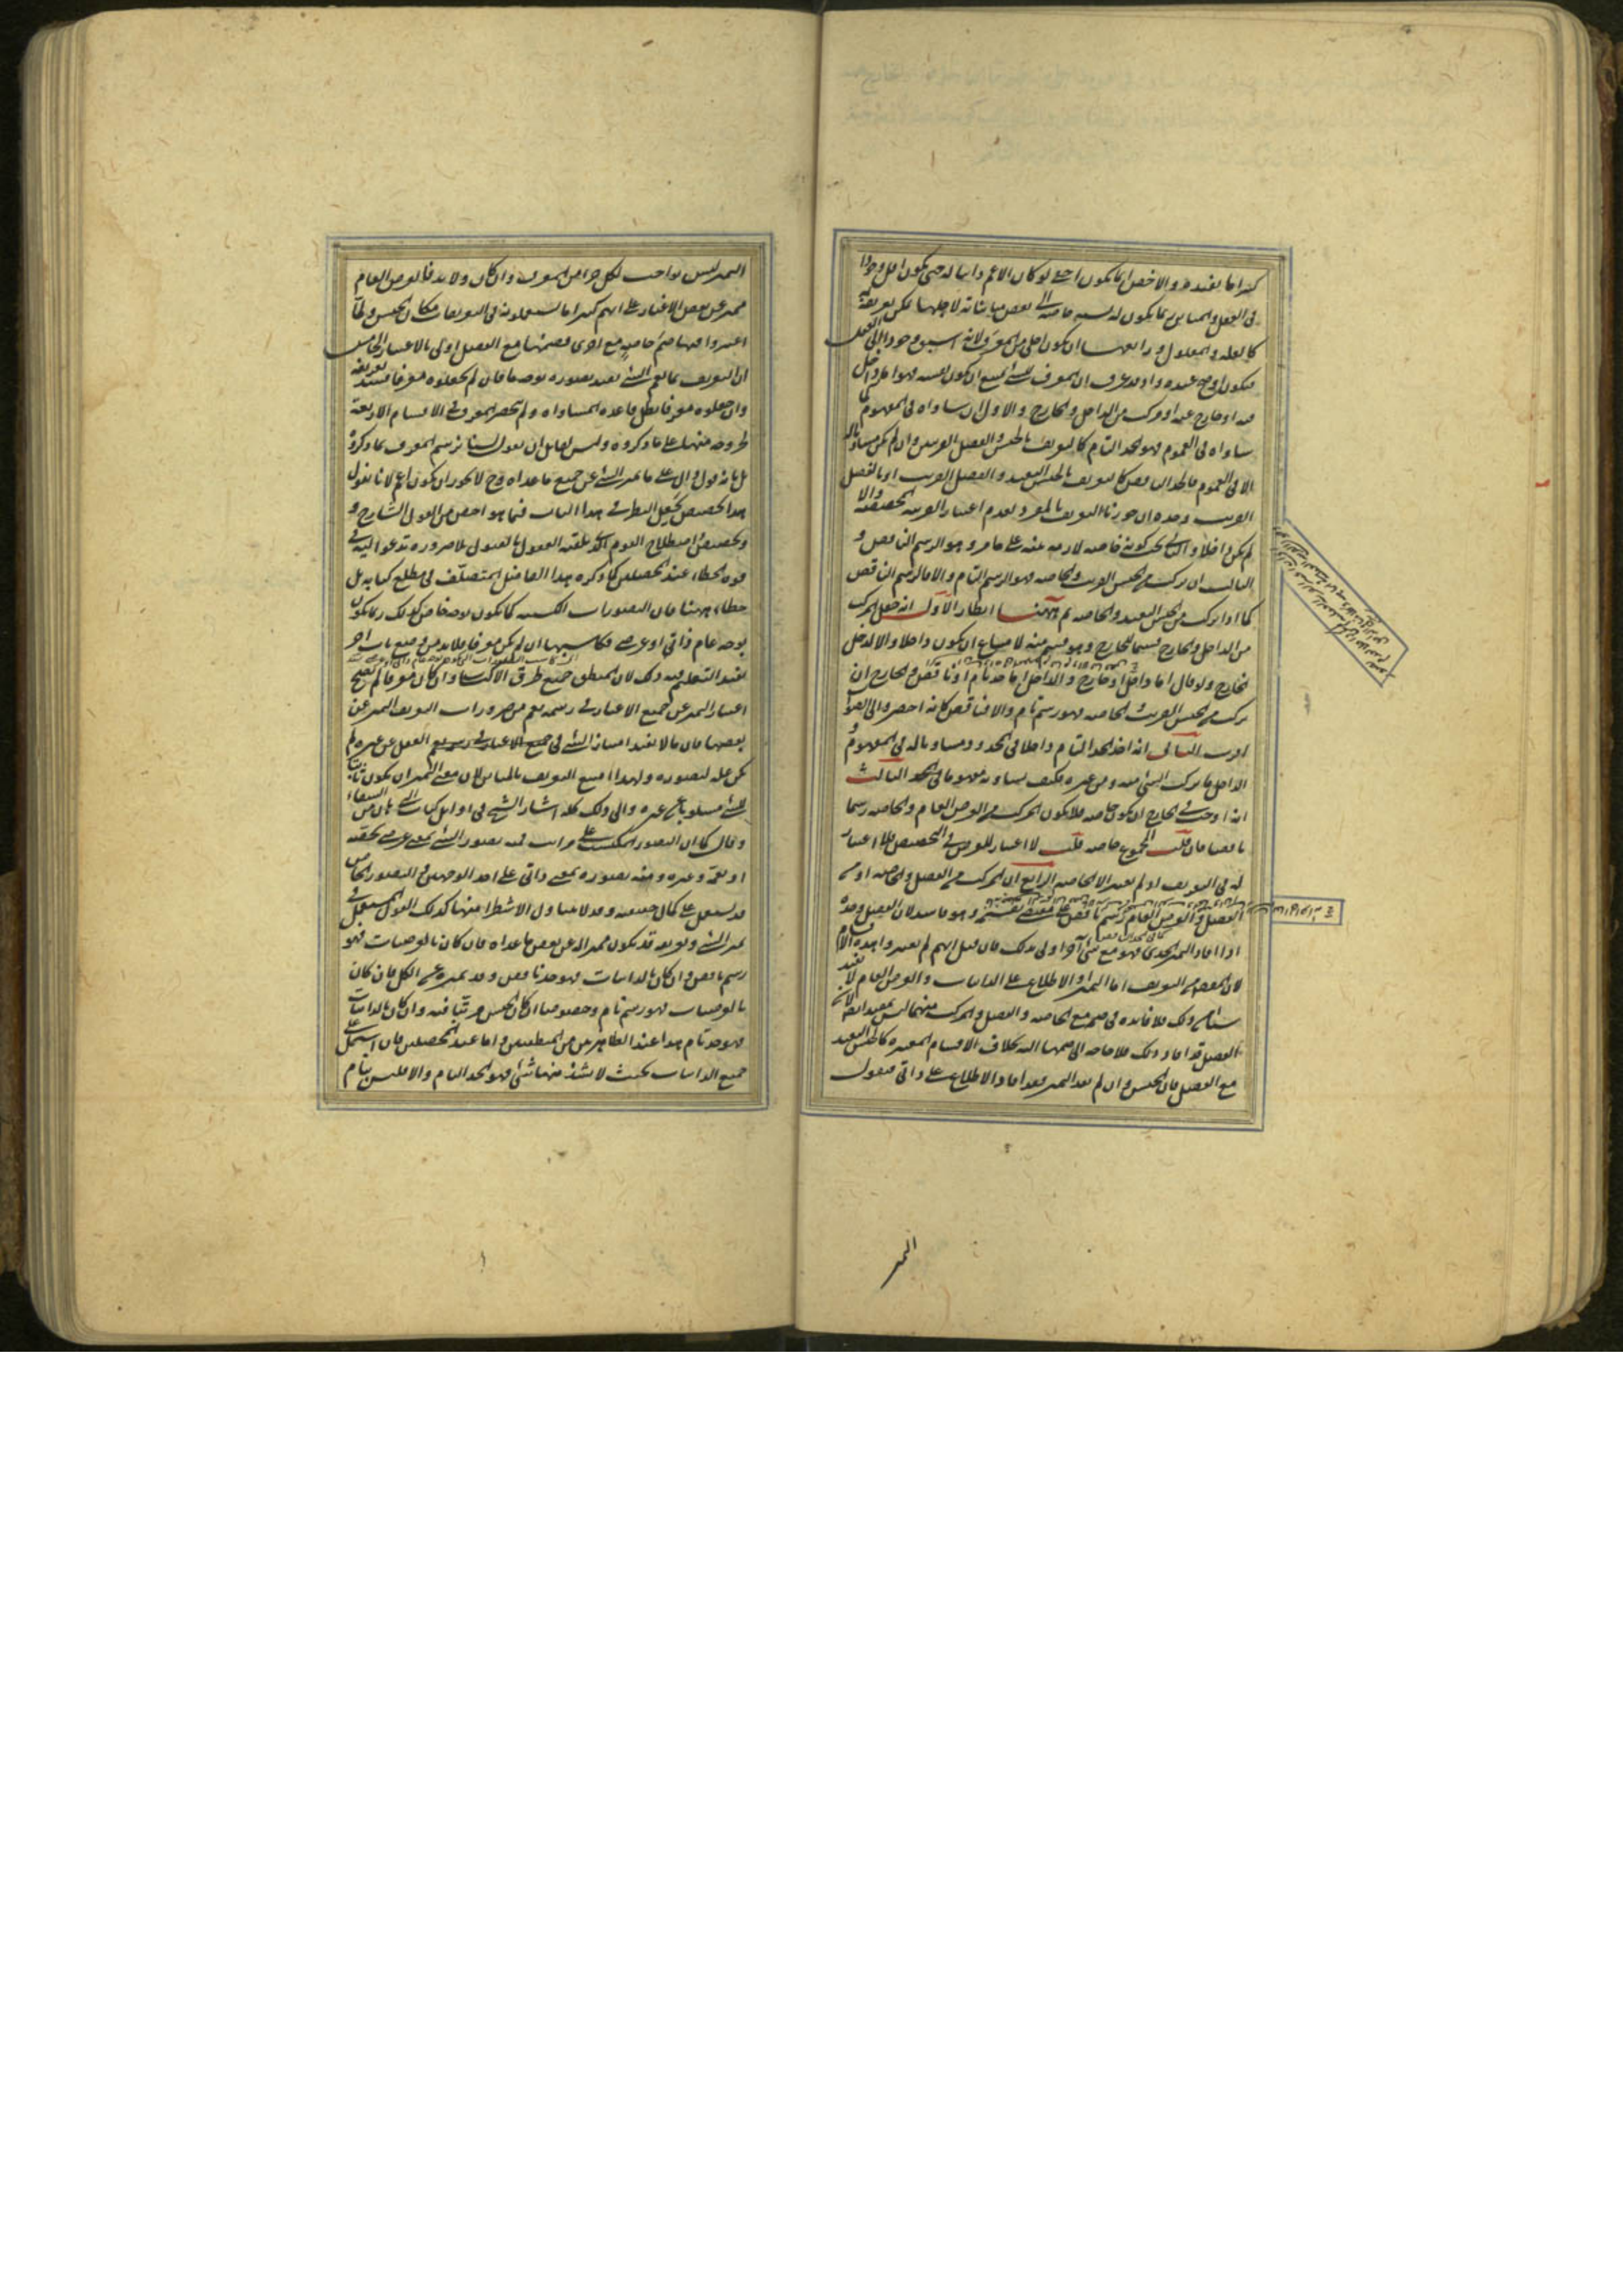 كثيرا ما يفيده والاخص انما يكون اخفى لو كان الاعم ذاتيا له حتى يكون اقل وجودا
في العقل والمباين ربما يكون له نسبة خاصة الى بعض مبايناته لاجلها يمكن تعريفه
كالعلة والمعلول ورابعها ان يكون اجلى من المعرف ولانه اسبق وجودا الى العقل
فيكون اوضح عنده واذ قد عرف ان المعرف للشئ يمتنع ان يكون نفسه فهو اما داخل
فيه او خارج عنه او مركب من الداخل والخارج والاول ان ساواه في المفهوم كما
ساواه في العموم فهو الحد التام كالتعريف بالجنس والفصل القريبين وان لم يكن مساويا له
الا في العموم فالحد الناقص كالتعريف بالجنس البعيد والفصل القريب او بالفصل
القريب وحده ان جوزنا التعريف بالمفرد لعدم اعتبار القرينة المخصصة والا
لم يكن داخلا والثاني يجب كونه خاصة لازمة بينة على ما مر وهو الرسم الناقص و
الثالث ان تركب من الجنس القريب والخاصة فهو الرسم التام والا فالرسم الناقص
كما اذا تركب من الجنس البعيد والخاصة ثم ههنا انظار الاول انه جعل المركب
من الداخل والخارج قسيما للخارج وهو قسم منه لامتناع ان يكون داخلا والا لدخل
الخارج ولو قال اما داخل او خارج والداخل اما حد تام او ناقص والخارج ان
تركب من الجنس القريب والخاصة فهو رسم تام والا فناقص كانه اخصر والى الصواب
اقرب الثاني انه اخذ الحد التام داخلا في المحدود ومساويا له في المفهوم و
الداخل ما تركب الشئ منه ومن غيره فكيف يساويه مفهوما في الحد الثالث
انه اوجب في الخارج ان يكون خاصة فلا يكون المركب من العرض العام والخاصة رسما
ناقصا فان قلت المجموع خاصة قلت لا اعتبار للعرض في التخصيص فلا اعتبار
له في التعريف اذ لم يعتبر الا الخاصة الرابع ان المركب من الفصل والخاصة او من
الفصل والعرض العام رسم ناقص على مقتضى تقسيمه وهو فاسد لان الفصل وحده
اذا افاد التميز الحدي فهو مع شئ آخر اولى بذلك فان قيل انهم لم يعتبروا هذه الاقسام
لان الغرض من التعريف اما التميز او الاطلاع على الذاتيات والعرض العام لا يفيد
شيئا من ذلك فلا فائدة في ضمه مع الخاصة والفصل والمركب منهما ليس بمعتبر ايضا لان
الفصل قد افاد ذلك فلا حاجة الى ضمها اليه بخلاف الاقسام المعتبرة كالجنس البعيد
مع الفصل فان الجنس وان لم يفد التميز فقد افاد الاطلاع على ذاتي فنقول
التميز
التميز ليس بواجب لكل جزء من المعرف وان كان ولا بد فالعرض العام
مميز عن بعض الاغيار على انهم كثيرا ما يستعملونه في التعريفات مكان الجنس ولما
اعتبروا فيها ضم خاصة مع اخرى فضمها مع الفصل اولى بالاعتبار الخامس
ان التعريف بما يعم الشئ يفيد تصوره بوجه ما فان لم يجعلوه معرفا فسد تعريفه
وان جعلوه معرفا بطل قاعدة المساواة ولم ينحصر المعرف في الاقسام الاربعة
لخروجه منها على ما ذكروه وليس لقائل ان يقول لسنا نرسم المعرف بما ذكروه
بل بانه قول دال على ما يميز الشئ عن جميع ما عداه وح لا يجوز ان يكون اعم لانا نقول
هذا تخصيص يجعل النظر في هذا الباب فيما هو اخص من القول الشارح و
تخصيص اصطلاح القوم الذي تلقته العقول بالقبول بلا ضرورة تدعو اليه في
قوة الخطاء عند المحصلين كما ذكره هذا الفاضل المتصلف في مطلع كتابه بل
خطاء ههنا فان التصورات المكتسبة كما تكون بوجه خاص كذلك ربما تكون
بوجه عام ذاتي او عرضي فكاسبها ان لم يكن معرفا فلا بد من وضع باب آخر
يفيد التعليم فيه وذلك لان المنطق جميع طرق الاكتساب وان كان معرفا لم يصح
اعتبار التميز عن جميع الاغيار في رسمه نعم من ضرورات التعريف التميز عن
بعضها فان ما لا يفيد امتياز الشئ عن جميع الاغيار في العقل عن غيره لم
يكن علة لتصوره ولهذا امتنع التعريف بالمباين لان معنى التميز ان يكون ثابتا
للشئ مسلوبا عن غيره والى ذلك كله اشار الشيخ في اوائل كتاب البرهان من الشفاء
وقال كما ان التصور المكتسب على مراتب فمنه تصور الشئ بمعنى عرضي يخصه
او يعمه وغيره ومنه تصوره بمعنى ذاتي على احد الوجهين والتصور الخاص
قد يشتمل على كمال حقيقته وقد لا يتناول الا شطرا منها كذلك القول المستعمل في
تميز الشئ وتعريفه قد يكون مميزا له عن بعض ما عداه فان كان بالعرضيات فهو
رسم ناقص وان كان بالذاتيات فهو حد ناقص وقد يميزه عن الكل فان كان
بالعرضيات فهو رسم تام وخصوصا ان كان الجنس مرتبا فيه وان كان بالذاتيات
فهو حد تام هذا عند الظاهريين من المنطقيين واما عند المحصلين فان اشتمل على
جميع الذاتيات بحيث لا يشذ منها شئ فهو الحد التام والا فليس بتام